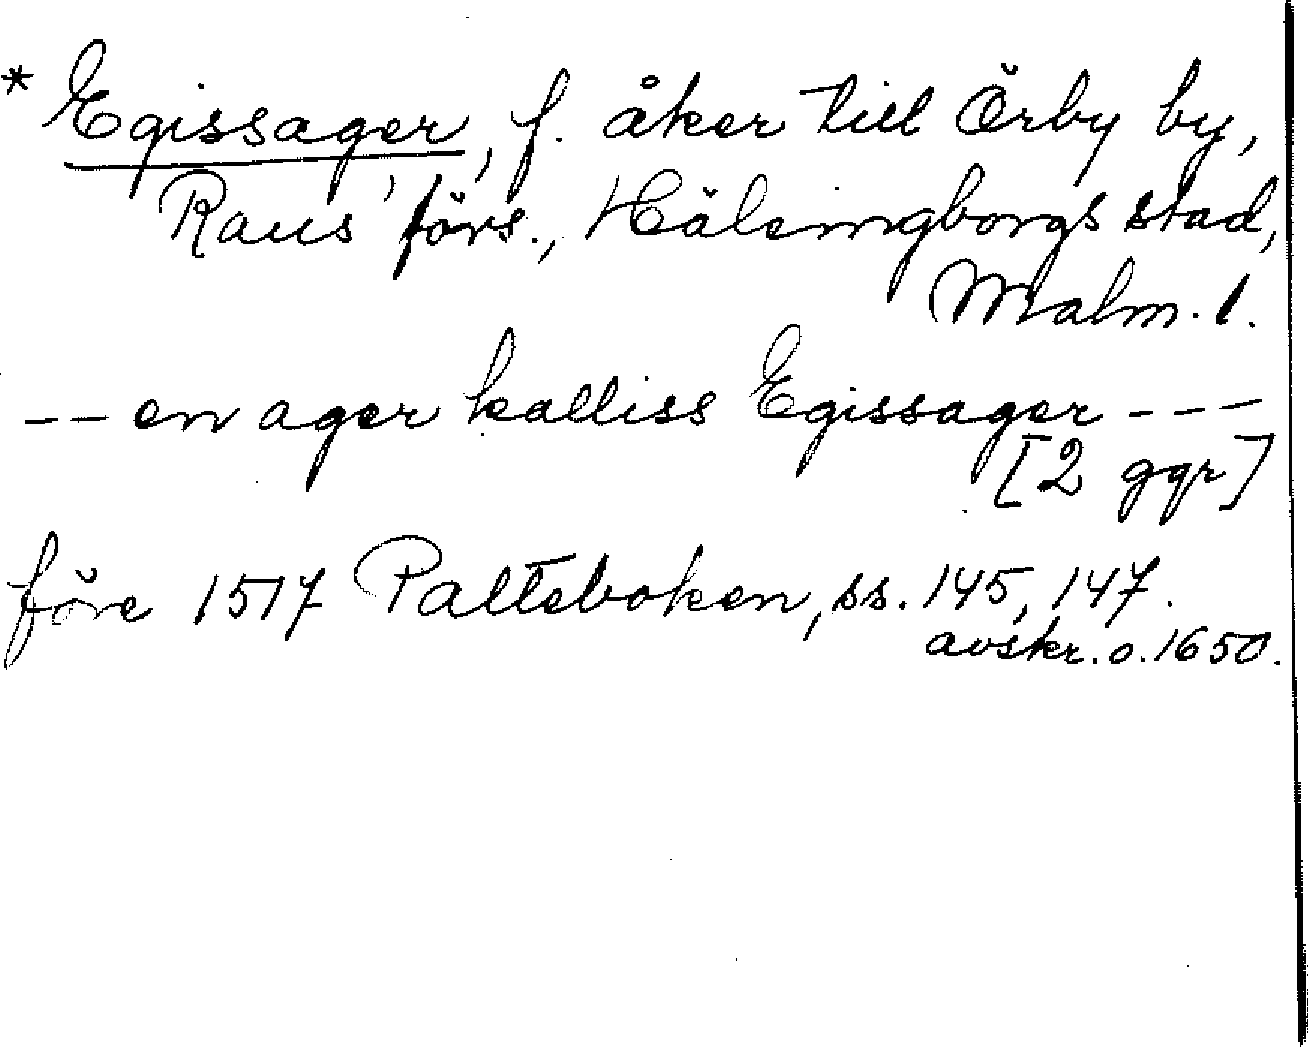 * Egissager, f. åker till Örby by,
Raus' förs., Hälsingborgs stad,
Malm. l.
-- en ager kalliss Egissager ---
[2 ggr]
före 1517 Palteboken, ss. 145, 147.
avskr. o. 1650.